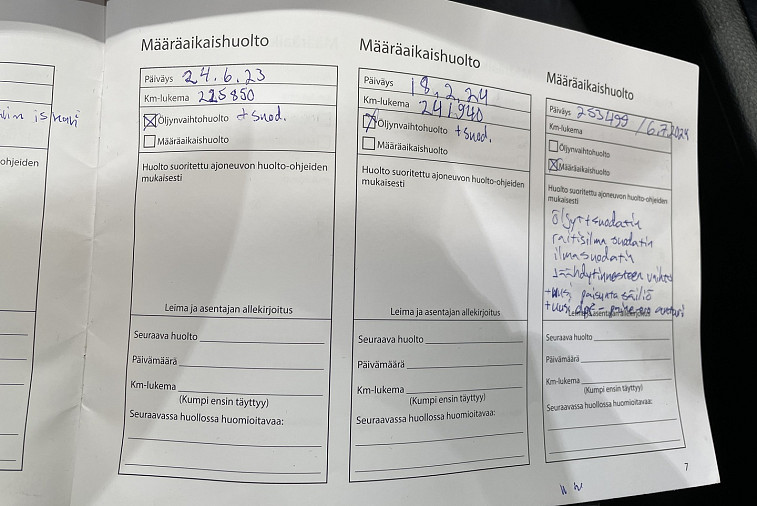 lin is
ohjeiden
Määräaikaishuolto
Päiväys 24.6.23
Km-lukema 225850
Öljynvaihtohuolto + suod.
Määräaikaishuolto
Huolto suoritettu ajoneuvon huolto-ohjeiden
mukaisesti
Leima ja asentajan allekirjoitus
Seuraava huolto
Päivämäärä
Km-lukema
(Kumpi ensin täyttyy)
Seuraavassa huollossa huomioitavaa:
Määräaikaishuolto
Päiväys 18.2.24
Km-lukema 241940
Öljynvaihtohuolto + suod.
Määräaikaishuolto
Huolto suoritettu ajoneuvon huolto-ohjeiden
mukaisesti
Leima ja asentajan allekirjoitus
Seuraava huolto
Päivämäärä
Km-lukema
(Kumpi ensin täyttyy)
Seuraavassa huollossa huomioitavaa:
Määräaikaishuolto
Päiväys 253499 / 6.7.2024
Km-lukema
Öljynvaihtohuolto
Määräaikaishuolto
Huolto suoritettu ajoneuvon huolto-ohjeiden
mukaisesti
öljyt+suodatin
raitisilma suodatin
ilmasuodatin
jäähdytinnesteen vaihto
+uusi paisunta säiliö
+uusi dpf - paine-ero anturi
Leima ja asentajan allekirjoitus
Seuraava huolto
Päivämäärä
Km-lukema
(Kumpi ensin täyttyy)
Seuraavassa huollossa huomioitavaa:
7